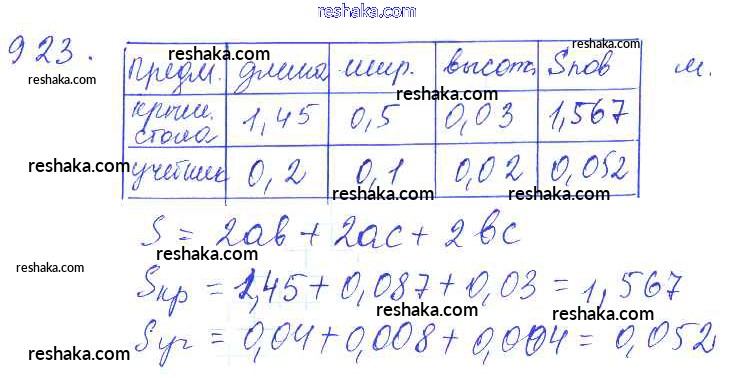 reshaka.com
923.
Предм. длина шир. высота Sпов м.
крыш. стола 1,45 0,5 0,03 1,567
учебник 0,2 0,1 0,02 0,052
S = 2ab + 2ac + 2bc
Sкр = 1,45 + 0,087 + 0,03 = 1,567
Sуч = 0,04 + 0,008 + 0,004 = 0,052
reshaka.com
reshaka.com
reshaka.com
reshaka.com
reshaka.com
reshaka.com
reshaka.com
reshaka.com
reshaka.com
reshaka.com
reshaka.com
reshaka.com
reshaka.com